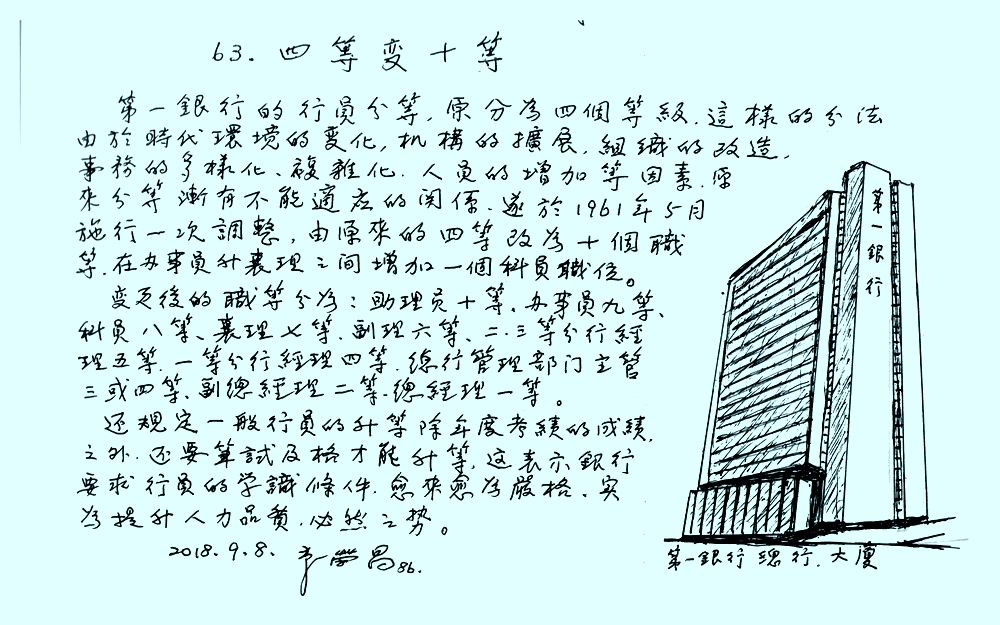 63. 四等变十等
第一銀行的行員分等，原分為四個等級，這樣的分法
由於時代環境的变化，机構的擴展，組織的改造，
事務的多樣化、複雜化，人員的增加等因素，原
來分等漸有不能適应的関係，遂於1961年5月
施行一次調整，由原來的四等改為十個職
等，在办事員升襄理之间增加一個科員職位。
变更後的職等分為：助理員十等、办事員九等、
科員八等、襄理七等、副理六等、二、三等分行經
理五等、一等分行經理四等、總行管理部门主管
三或四等、副總經理二等、總經理一等。
还規定一般行員的升等除年度考績的成績，
之外，还要筆試及格才能升等，这表示銀行
要求行員的学識條件，愈來愈為嚴格，实
為提升人力品質，必然之势。
2018.9.8.
86.
第一銀行
第一銀行總行大廈